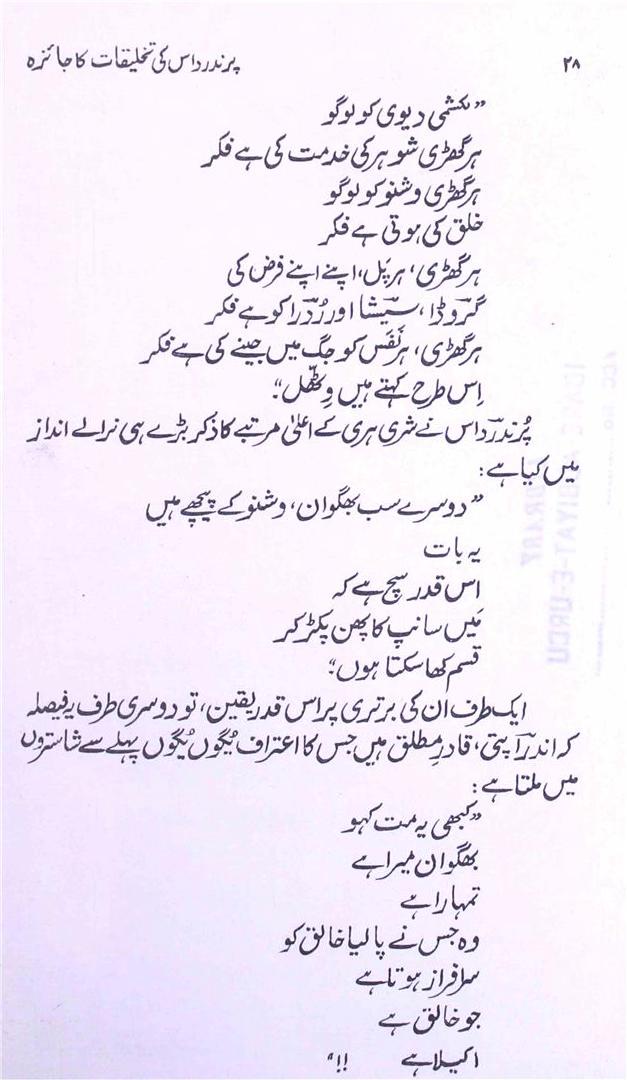 ۲۸ پرندرداس کی تخلیقات کا جائزہ
”لکشمی دیوی کو لوگو
ہر گھڑی شوہر کی خدمت کی ہے فکر
ہر گھڑی وشنو کو لوگو
خلق کی ہوتی ہے فکر
ہر گھڑی، ہر پَل، اپنے اپنے فرض کی
گروڈا، سیشا اور رُدرا کو ہے فکر
ہر گھڑی، ہر نَفَس کو جگ میں جینے کی ہے فکر
اِس طرح کہتے ہیں وِٹھّل“۔
پُرندرداس نے شری ہری کے اعلیٰ مرتبے کا ذکر بڑے ہی نرالے انداز
میں کیا ہے:
”دوسرے سب بھگوان، وشنو کے پیچھے ہیں
یہ بات
اس قدر سچ ہے کہ
مَیں سانپ کا پھن پکڑ کر
قسم کھا سکتا ہوں“۔
ایک طرف ان کی برتری پر اس قدر یقین، تو دوسری طرف یہ فیصلہ
کہ اندرا پتی، قادرِ مطلق ہیں جس کا اعتراف یُگوں یُگوں پہلے سے شاستروں
میں ملتا ہے:
”کبھی یہ مت کہو
بھگوان میرا ہے
تمہارا ہے
وہ جس نے پا لیا خالق کو
سرافراز ہوتا ہے
جو خالق ہے
اکیلا ہے !!“
IDARE ADBIYAT-E-URDU
LIBRARY